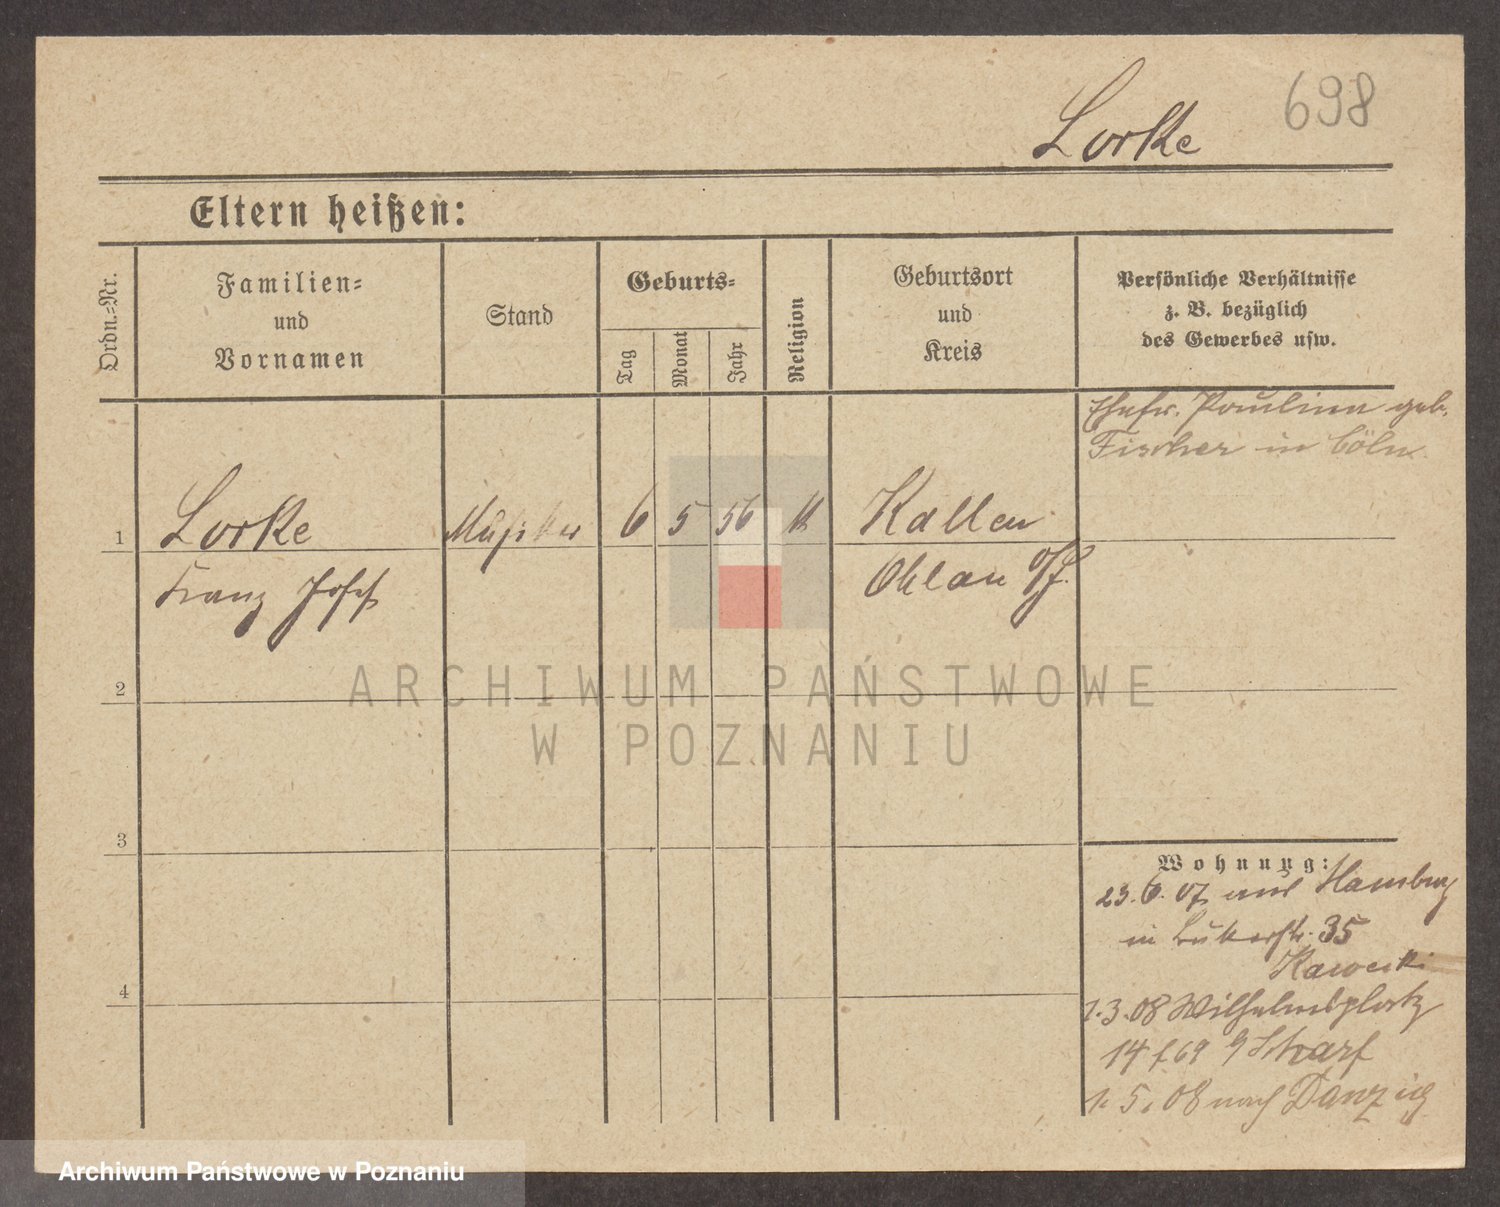 698
Lorke
Eltern heißen:
Ordn.=Nr.
Familien=
und
Vornamen
Stand
Geburts=
Tag
Monat
Jahr
Religion
Geburtsort
und
Kreis
Persönliche Verhältnisse
z. B. bezüglich
des Gewerbes usw.
Ehefr. Paulina geb.
Fischer in Cöln
1
Lorke
Musiker
6
5
56
k
Kallen
Franz Josef
Ohlau
2
3
4
Wohnung:
23.6.07 aus Hamburg
in 35
Kawecki
1.3.08 Wilhelmsplatz
14 Scharf
1.5.08 nach Danzig
ARCHIWUM PAŃSTWOWE
W POZNANIU
Archiwum Państwowe w Poznaniu